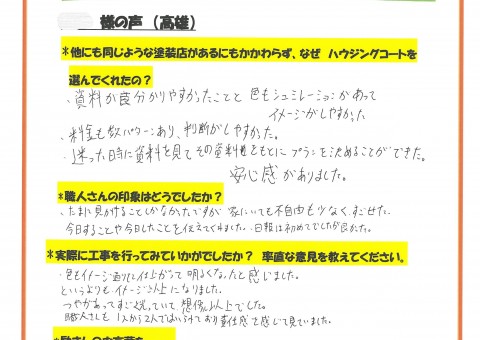 様の声 （高雄）
＊他にも同じような塗装店があるにもかかわらず、なぜ ハウジングコートを
選んでくれたの？
・資料が分かりやすかったことと 色もシュミレーションがあって
イメージがしやすかった
・料金も数パターンあり、判断がしやすかった。
・迷った時に資料を見てその資料をもとに プランを決めることができた。
安心感がありました。
＊職人さんの印象はどうでしたか？
・たまに見かけることしかなかったですが 家にいても不自由も少なく、すごせた。
今日することや今日したことを伝えてくれました。日報は初めてでしたが良かった。
＊実際に工事を行ってみていかがでしたか？ 率直な意見を教えてください。
・色もイメージ通りに仕上がって 明るくなったと感じました。
というよりも イメージ以上になりました。
つやがあってすごく光っていて 想像以上でした。
職人さんも 1人から2人で 責任感を感じて見ていました。